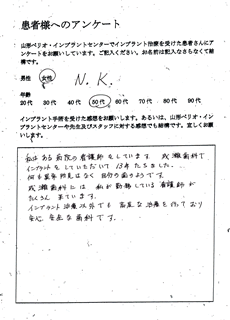 患者様へのアンケート
山形ペリオ・インプラントセンターでインプラント治療を受けた患者さんにア
ンケートをお願いしています。ご記入ください。お名前は記入なさらなくて結
構です。
男性 女性 N.K.
年齢
20代 30代 40代 50代 60代 70代 80代
インプラント手術を受けた感想をお願いします。あるいは、山形ペリオ・イン
プラントセンターや先生及びスタッフに対する感想でも結構です。宜しくお願
いします。
私はある病院の看護師をしています 成瀬歯科で
インプラントをしていただいて 13年たちました。
何も異常なく 自分の歯のようです。
成瀬歯科には 私が勤務している看護師が
たくさん 来ています。
インプラント治療以外でも 高度な治療を行っており
安心 安全な歯科です。